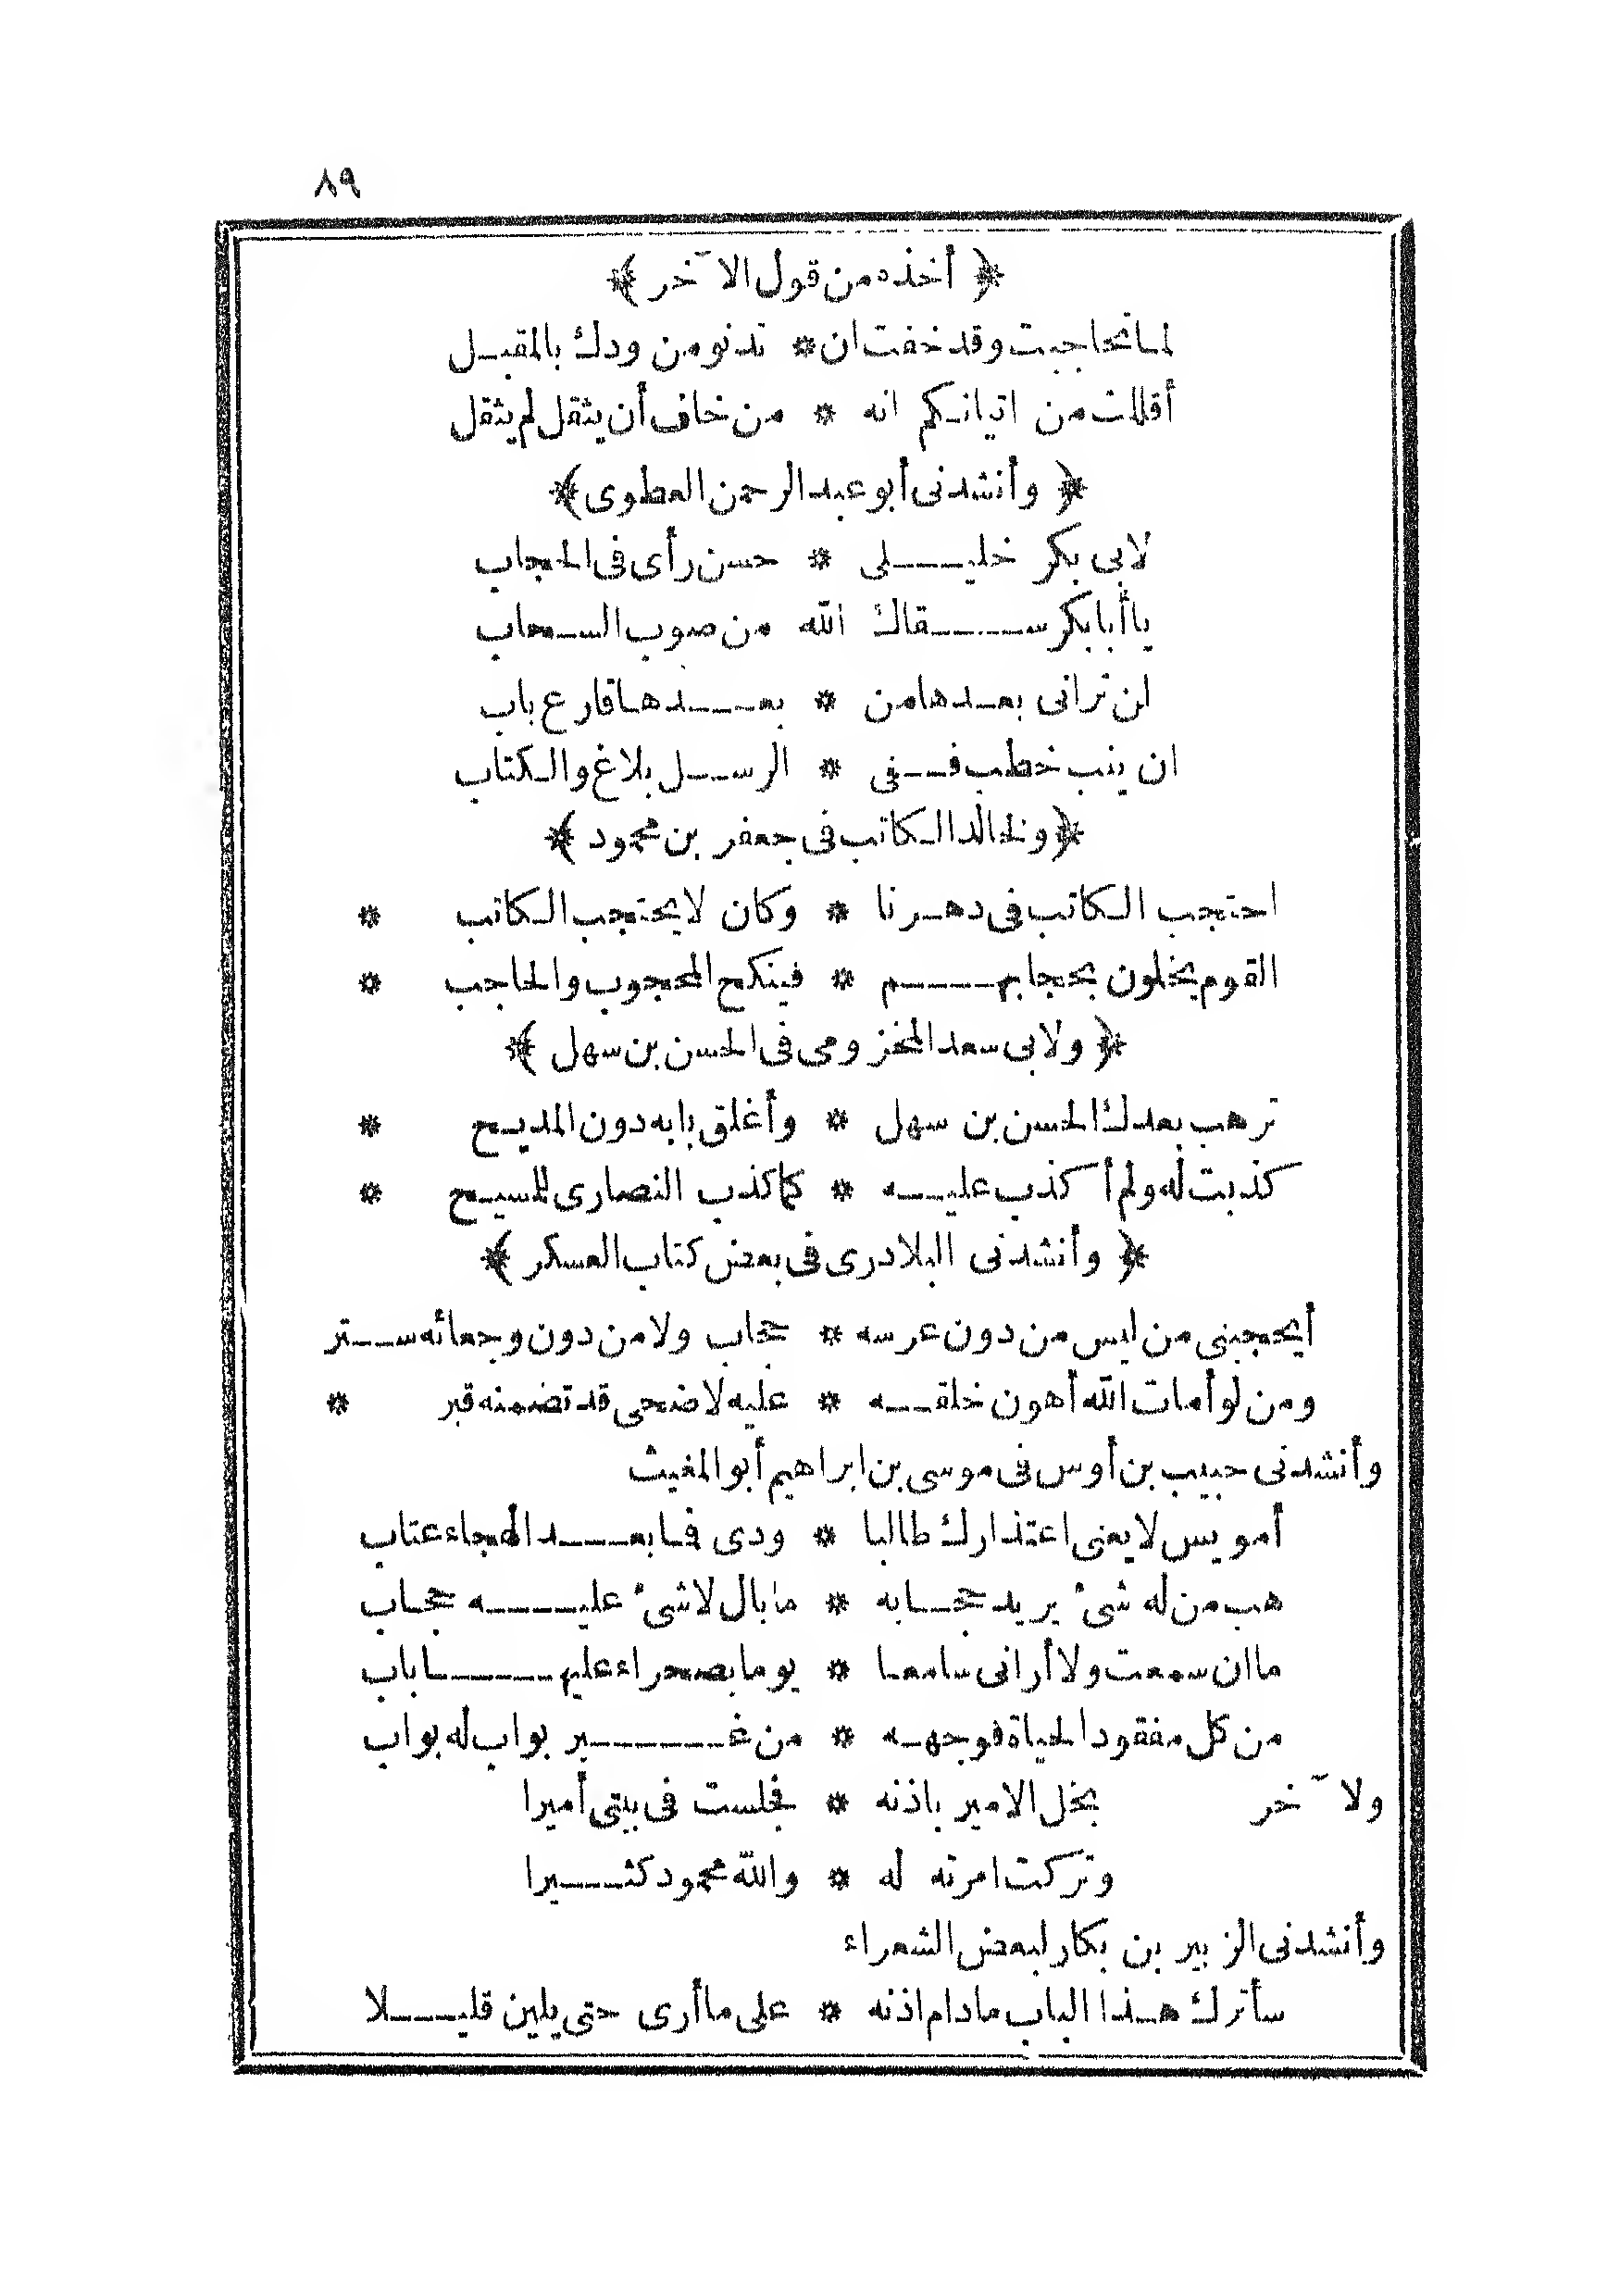 ٨٩
﴿ أخذه من قول الآخر ﴾
لما تحاجبت وقد خفت ان * تدنو من ودك بالمقبل
أقللت من اتيانكم انه * من خاف أن يثقل لم يثقل
﴿ وأنشدنى أبو عبد الرحمن العطوى ﴾
لابى بكر خليلى * حسن رأى فى الحجاب
يا أبا بكر سقاك الله من صوب السحاب
لن ترانى بعدها من * بعدها قارع باب
ان ينب خطب ففى * الرسل بلاغ والكتاب
﴿ ولخالد الكاتب فى جعفر بن محمود ﴾
احتجب الكاتب فى دهرنا * وكان لا يحتجب الكاتب *
القوم يخلون بحجابهم * فينكح المحجوب والحاجب *
﴿ ولابى سعد المخزومى فى الحسن بن سهل ﴾
ترهب بعدك الحسن بن سهل * وأغلق بابه دون المديح *
كذبت له ولم أكذب عليه * كما كذب النصارى للمسيح *
﴿ وأنشدنى البلادرى فى بعض كتاب العسكر ﴾
أيحجبنى من ليس من دون عرسه * حجاب ولا من دون وجعائه ستر
ومن لو أمات الله أهون خلقه * عليه لاضحى قد تضمنه قبر *
وأنشدنى حبيب بن أوس فى موسى بن ابراهيم أبو المغيث
أمويس لا يغنى اعتذارك طالبا * ودى فما بعد الهجاء عتاب
هب من له شئ يريد حجابه * ما بال لا شئ عليه حجاب
ما ان سمعت ولا أرانى سامعا * يوما بصحراء عليها باب
من كل مفقود الحياة فوجهه * من غير بواب له بواب
ولآخر بخل الامير باذنه * فجلست فى بيتى أميرا
وتركت امرته له * والله محمود كثيرا
وأنشدنى الزبير بن بكار لبعض الشعراء
سأترك هذا الباب مادام اذنه * على ما أرى حتى يلين قليلا